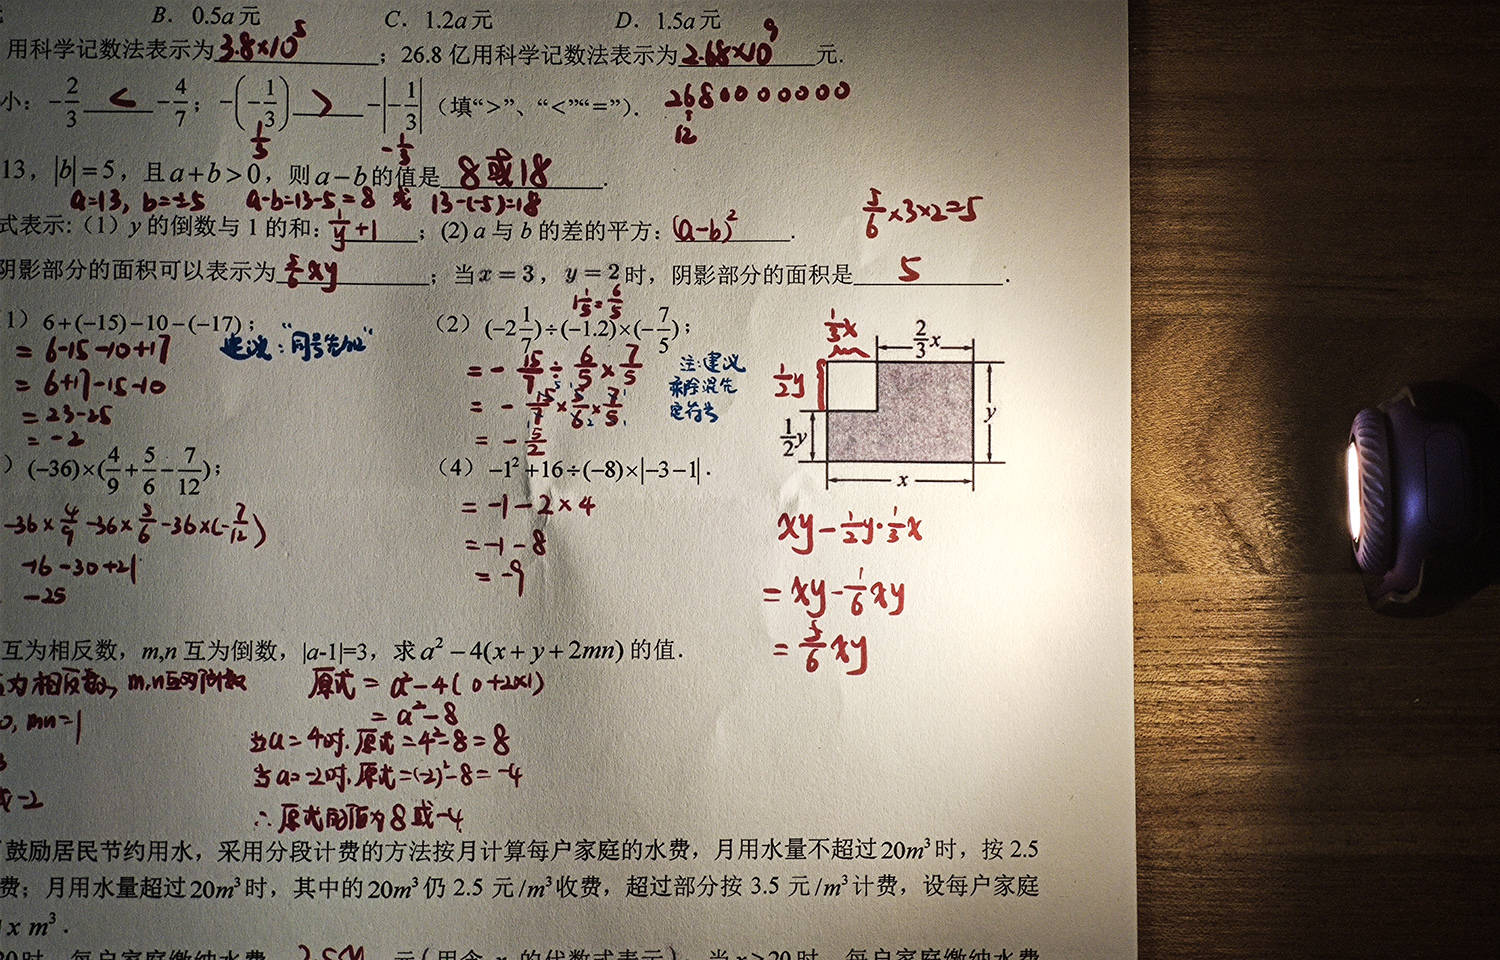 B. 0.5a元 C. 1.2a元 D. 1.5a元
用科学记数法表示为3.8×10⁵；26.8亿用科学记数法表示为2.68×10⁹元.
小：-2/3 < -4/7；-(-1/3) > -|-1/3|（填“>”、“<”“=”）.
2680000000
1/3 -1/3 12
13，|b|=5，且a+b>0，则a-b的值是8或18.
a=13, b=±5 a-b=13-5=8 或 13-(-5)=18
5/6×3×2=5
式表示:（1）y的倒数与1的和：1/y+1；(2) a与b的差的平方：(a-b)².
阴影部分的面积可以表示为5/6xy；当x=3，y=2时，阴影部分的面积是5.
1）6+(-15)-10-(-17)；
=6-15-10+17
建议：“同号先加”
=6+17-15-10
=23-25
=-2
（2）(-2 1/7)÷(-1.2)×(-7/5)；
1 1/5=6/5
=-15/7÷6/5×7/5
=-15/7×5/6×7/5
=-5/2
注:建议
乘除混先
定符号
1/3x
2/3x
1/2y
1/2y
y
x
）(-36)×(4/9+5/6-7/12)；
-36×4/9-36×5/6-36×(-7/12)
-16-30+21
-25
（4）-1²+16÷(-8)×|-3-1|.
=-1-2×4
=-1-8
=-9
xy-1/2y·1/3x
=xy-1/6xy
=5/6xy
互为相反数，m,n互为倒数，|a-1|=3，求a²-4(x+y+2mn)的值.
互为相反数, m,n互为倒数
0, mn=1
或-2
原式=a²-4(0+2×1)
=a²-8
当a=4时,原式=4²-8=8
当a=-2时,原式=(-2)²-8=-4
∴原式的值为8或-4
鼓励居民节约用水，采用分段计费的方法按月计算每户家庭的水费，月用水量不超过20m³时，按2.5
费；月用水量超过20m³时，其中的20m³仍2.5元/m³收费，超过部分按3.5元/m³计费，设每户家庭
x m³.
20时，每户家庭缴纳水费2.5x元（用含x的代数式表示），当x>20时，每户家庭缴纳水费